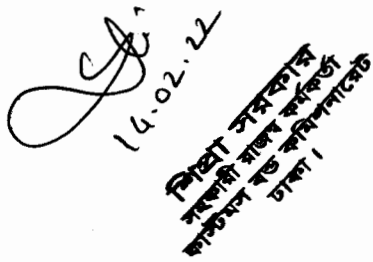 14.02.22
শিপ্রা সরকার
সহকারী রাজস্ব কর্মকর্তা
কাস্টমস বন্ড কমিশনারেট
ঢাকা।